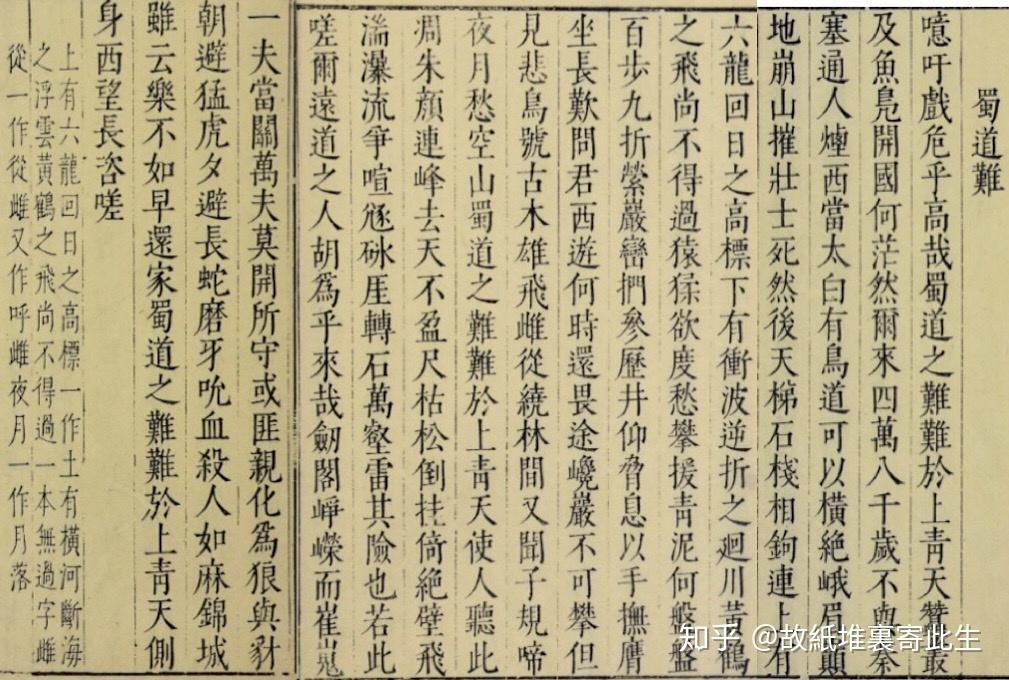 蜀道難
噫吁戲危乎高哉蜀道之難難於上靑天蠶叢
及魚鳧開國何茫然爾來四萬八千歲不與秦
塞通人煙西當太白有鳥道可以橫絶峨眉顚
地崩山摧壯士死然後天梯石棧相鉤連上有
六龍回日之高標下有衝波逆折之迴川黃鶴
之飛尚不得過猿猱欲度愁攀援靑泥何盤盤
百步九折縈巖巒捫參歷井仰脅息以手撫膺
坐長歎問君西遊何時還畏途巉巖不可攀但
見悲鳥號古木雄飛雌從繞林間又聞子規啼
夜月愁空山蜀道之難難於上靑天使人聽此
凋朱顔連峰去天不盈尺枯松倒挂倚絶壁飛
湍瀑流爭喧豗砯厓轉石萬壑雷其險也若此
嗟爾遠道之人胡爲乎來哉劒閣崢嶸而崔嵬
一夫當關萬夫莫開所守或匪親化爲狼與豺
朝避猛虎夕避長蛇磨牙吮血殺人如麻錦城
雖云樂不如早還家蜀道之難難於上靑天側
身西望長咨嗟
上有六龍回日之高標一作土有橫河斷海
之浮雲黃鶴之飛尚不得過一本無過字雌
從一作從雌又作呼雌夜月一作月落
知乎 @故紙堆裏寄此生